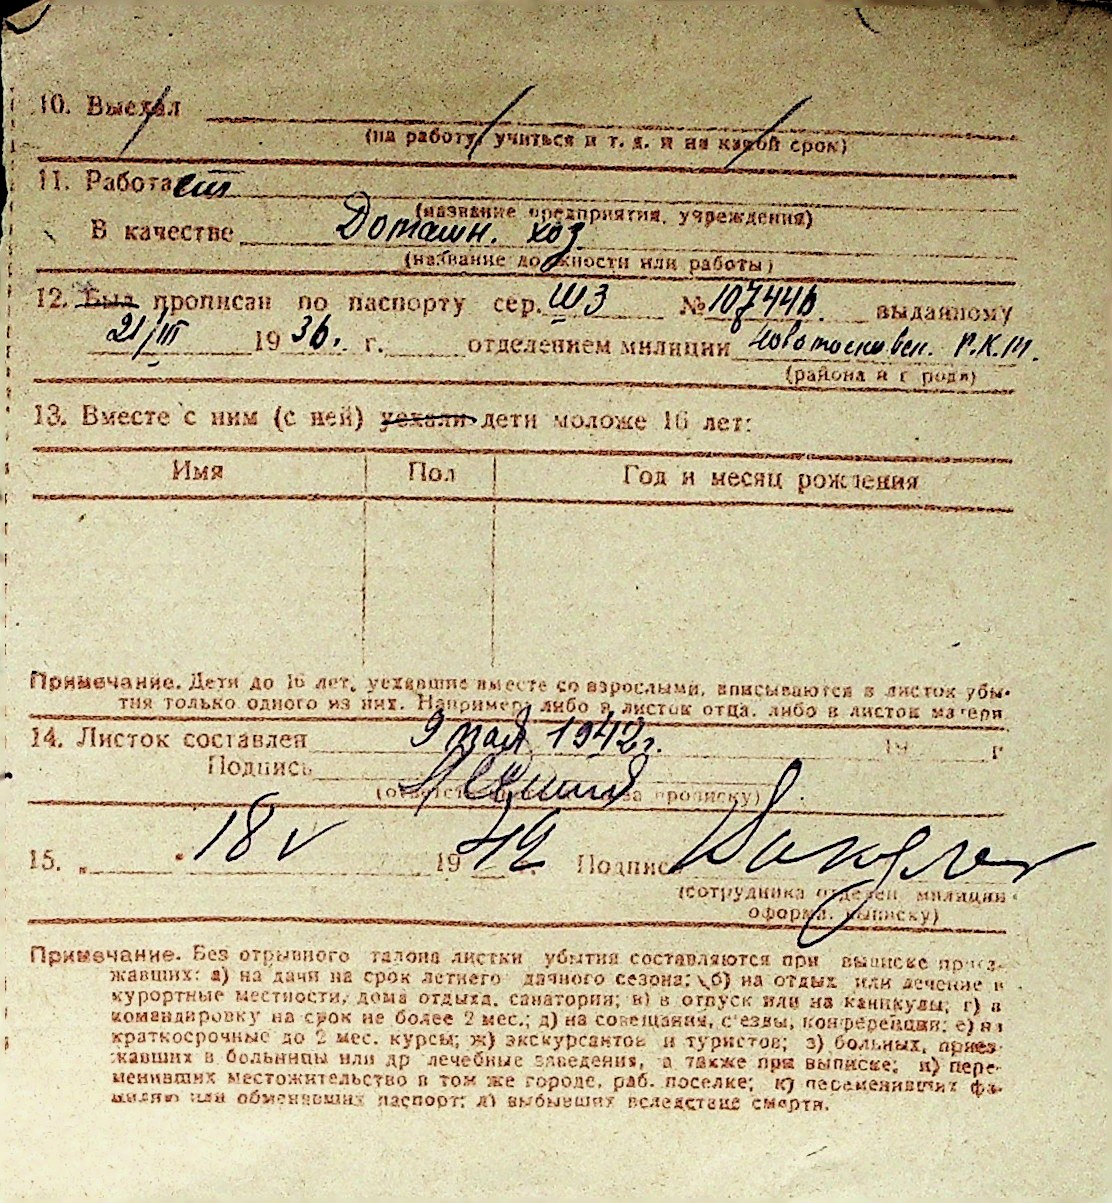 10. Выехал
(на работу, учиться и т. д. и на какой срок)
11. Работает
(название предприятия, учреждения)
В качестве Домашн. хоз.
(название должности или работы)
12. Был прописан по паспорту сер. ШЗ № 107446 выданному
21/III 1936. г. отделением милиции Новомосковск. Р.К.М.
(района и города)
13. Вместе с ним (с ней) уехали дети моложе 16 лет:
Имя Пол Год и месяц рождения
Примечание. Дети до 16 лет, уехавшие вместе со взрослыми, вписываются в листок убы-
тия только одного из них. Например: либо в листок отца, либо в листок матери
14. Листок составлен 9 мая 1942 г. 19 г
Подпись
(ответств. за прописку)
15. „ " 18 V 1942 г. Подпись
(сотрудника отделен. милиции
оформ. выписку)
Примечание. Без отрывного талона листки убытия составляются при выписке приез-
жавших: а) на дачи на срок летнего дачного сезона; б) на отдых или лечение в
курортные местности, дома отдыха, санатории; в) в отпуск или на каникулы; г) в
командировку на срок не более 2 мес.; д) на совещания, с'езды, конференции; е) на
краткосрочные до 2 мес. курсы; ж) экскурсантов и туристов; з) больных, приез-
жавших в больницы или др лечебные заведения, а также при выписке; и) пере-
менивших местожительство в том же городе, раб. поселке; к) переменивших фа-
милию или обменявших паспорт; л) выбывших вследствие смерти.